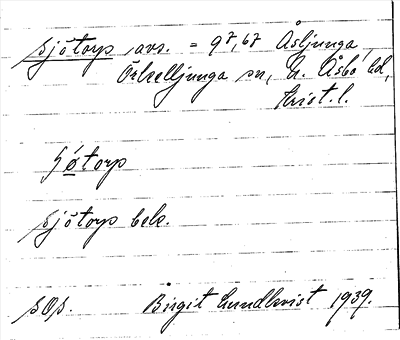 Sjötorp, avs. = 97,67 Åsljunga,
Örkelljunga sn, N. Åsbo hd,
Krist. l.
ʃǿtorp
sjötorp bek.
sOs. Birgit Lundkvist 1939.